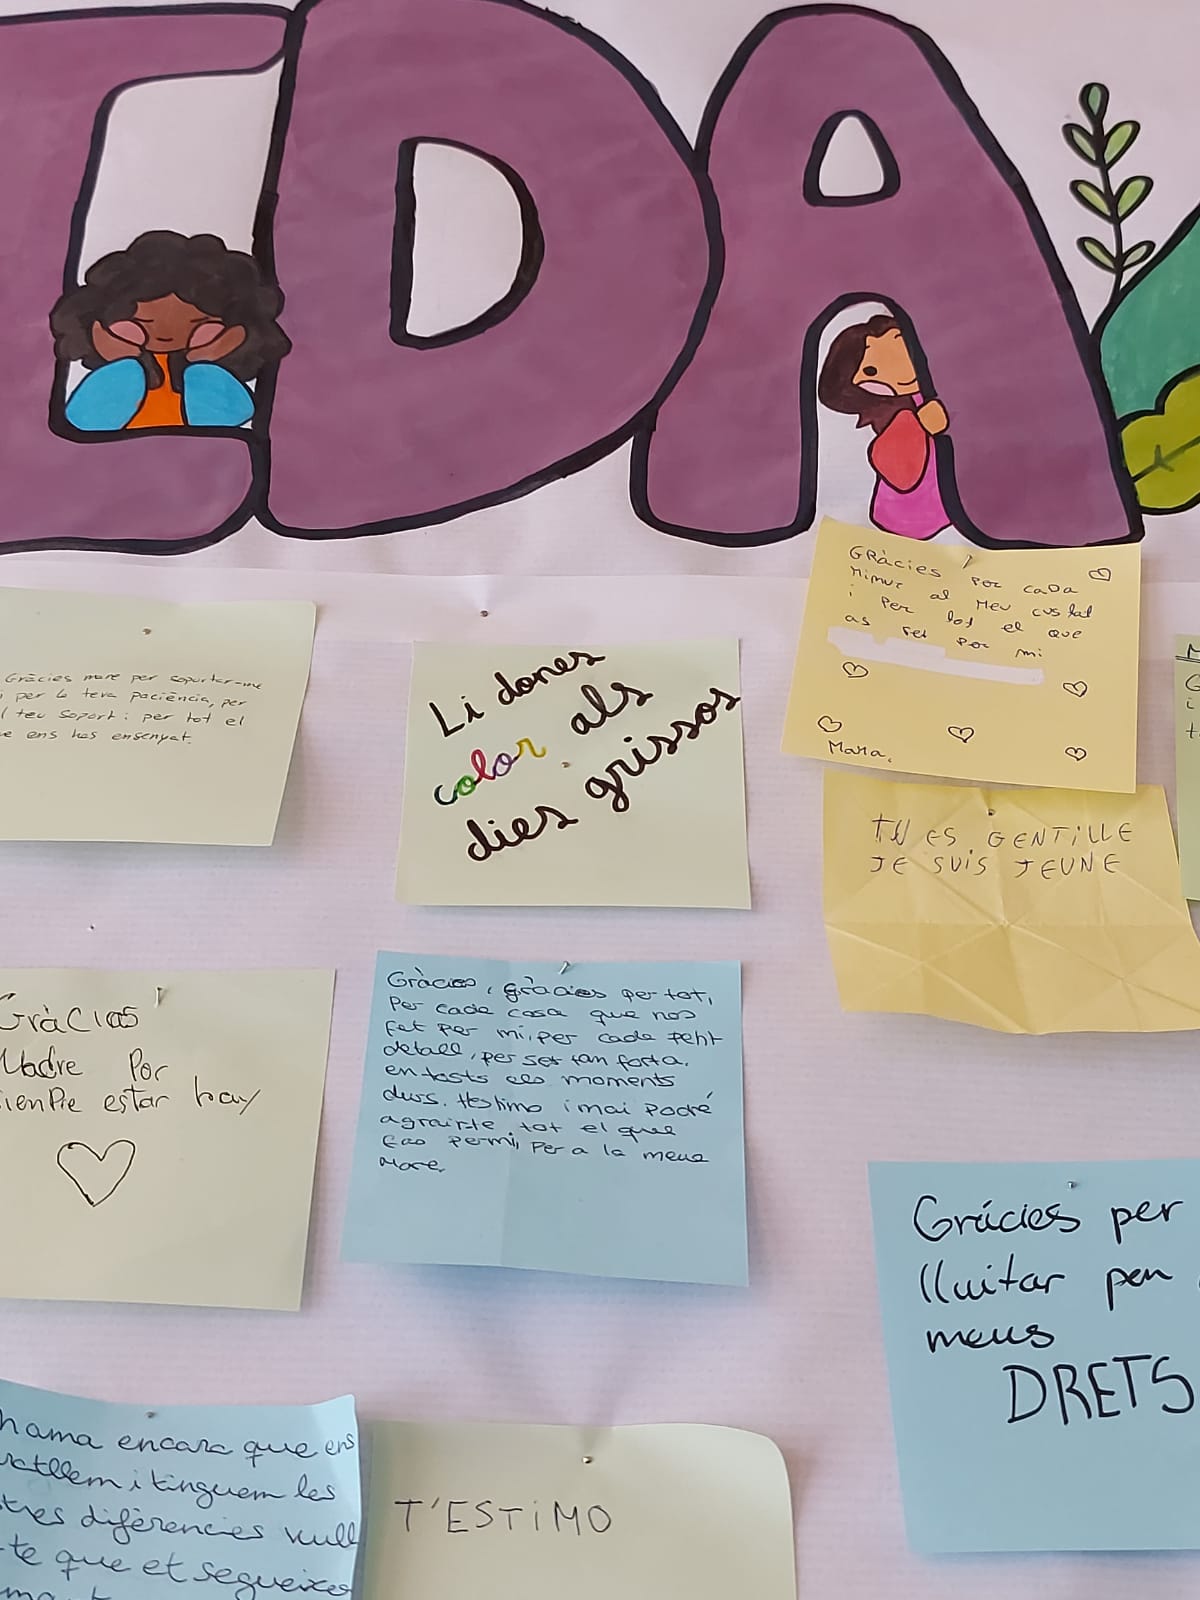 IDA
Gràcies mare per soportar-me
i per la teva paciència, per
l teu soport i per tot el
e ens has ensenyat.
Li dones
color als
dies grissos
GRàcies per cada
Minut al Meu costat
i Per tot el que
as fet per mi
Mama.
TU ES GENTILLE
JE SUIS JEUNE
Gràcias
Madre Por
siempre estar hay
Gràcies, gràcies per tot,
Per cada cosa que nos
fet per mi, per cada petit
detall, per ser tan forta.
en tosts els moments
durs. testimo i mai Podré
agrairte tot el que
fas per mi, Per a la meva
Mare.
Gràcies per
lluitar pen
meus
DRETS
mama encara que ens
atllem i tinguem les
tres diferències vull
-te que et segueixes
T'ESTIMO